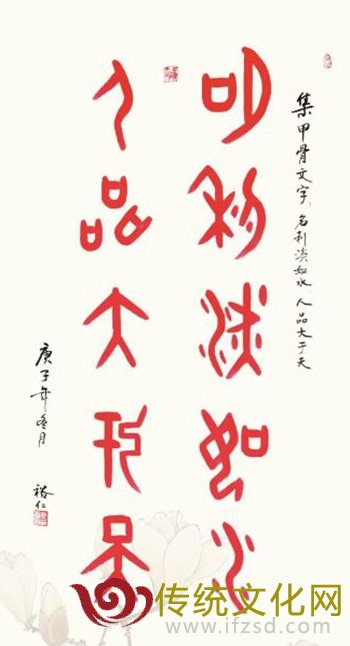 集甲骨文字 名利淡如水 人品大于天
名利淡如水
人品大于天
庚子年冬月
裕仁
传统文化网
www.ifzsd.com